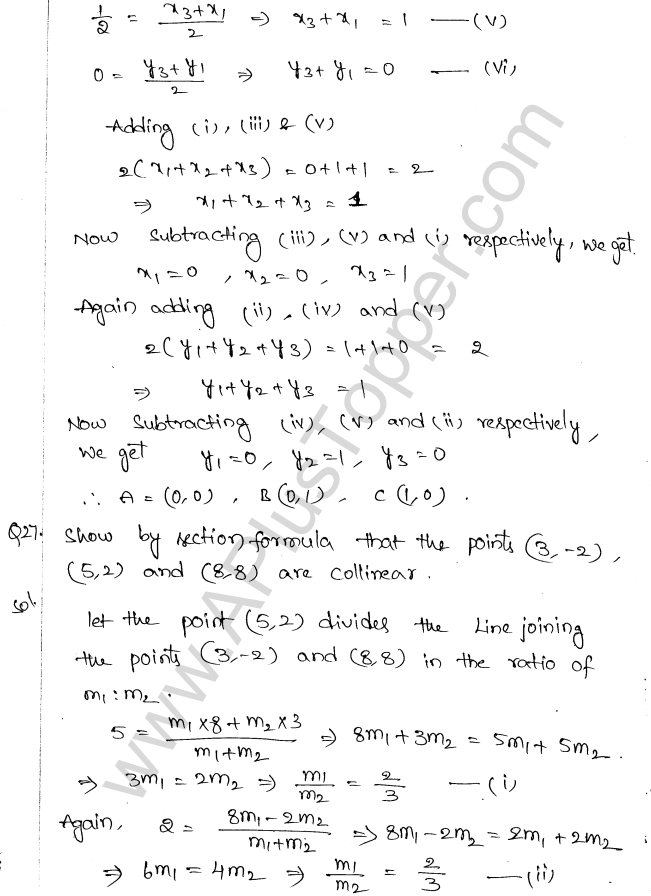 1/2 = (x3+x1)/2 ⇒ x3+x1 = 1 —(V)
0 = (y3+y1)/2 ⇒ y3+y1 = 0 —(Vi)
Adding (i), (iii) & (V)
2(x1+x2+x3) = 0+1+1 = 2
⇒ x1+x2+x3 = 1
Now subtracting (iii), (V) and (i) respectively, we get.
x1=0, x2=0, x3=1
Again adding (ii), (iv) and (V)
2(y1+y2+y3) = 1+1+0 = 2
⇒ y1+y2+y3 = 1
Now subtracting (iv), (V) and (ii) respectively,
we get y1=0, y2=1, y3=0
∴ A = (0,0), B(0,1), C(1,0).
Q27. Show by section formula that the points (3,-2),
(5,2) and (8,8) are collinear.
Sol. let the point (5,2) divides the Line joining
the points (3,-2) and (8,8) in the ratio of
m1:m2.
5 = (m1×8+m2×3)/(m1+m2) ⇒ 8m1+3m2 = 5m1+5m2.
⇒ 3m1=2m2 ⇒ m1/m2 = 2/3 —(i)
Again, 2 = (8m1-2m2)/(m1+m2) ⇒ 8m1-2m2 = 2m1+2m2
⇒ 6m1=4m2 ⇒ m1/m2 = 2/3 —(ii)
www.APlusTopper.com